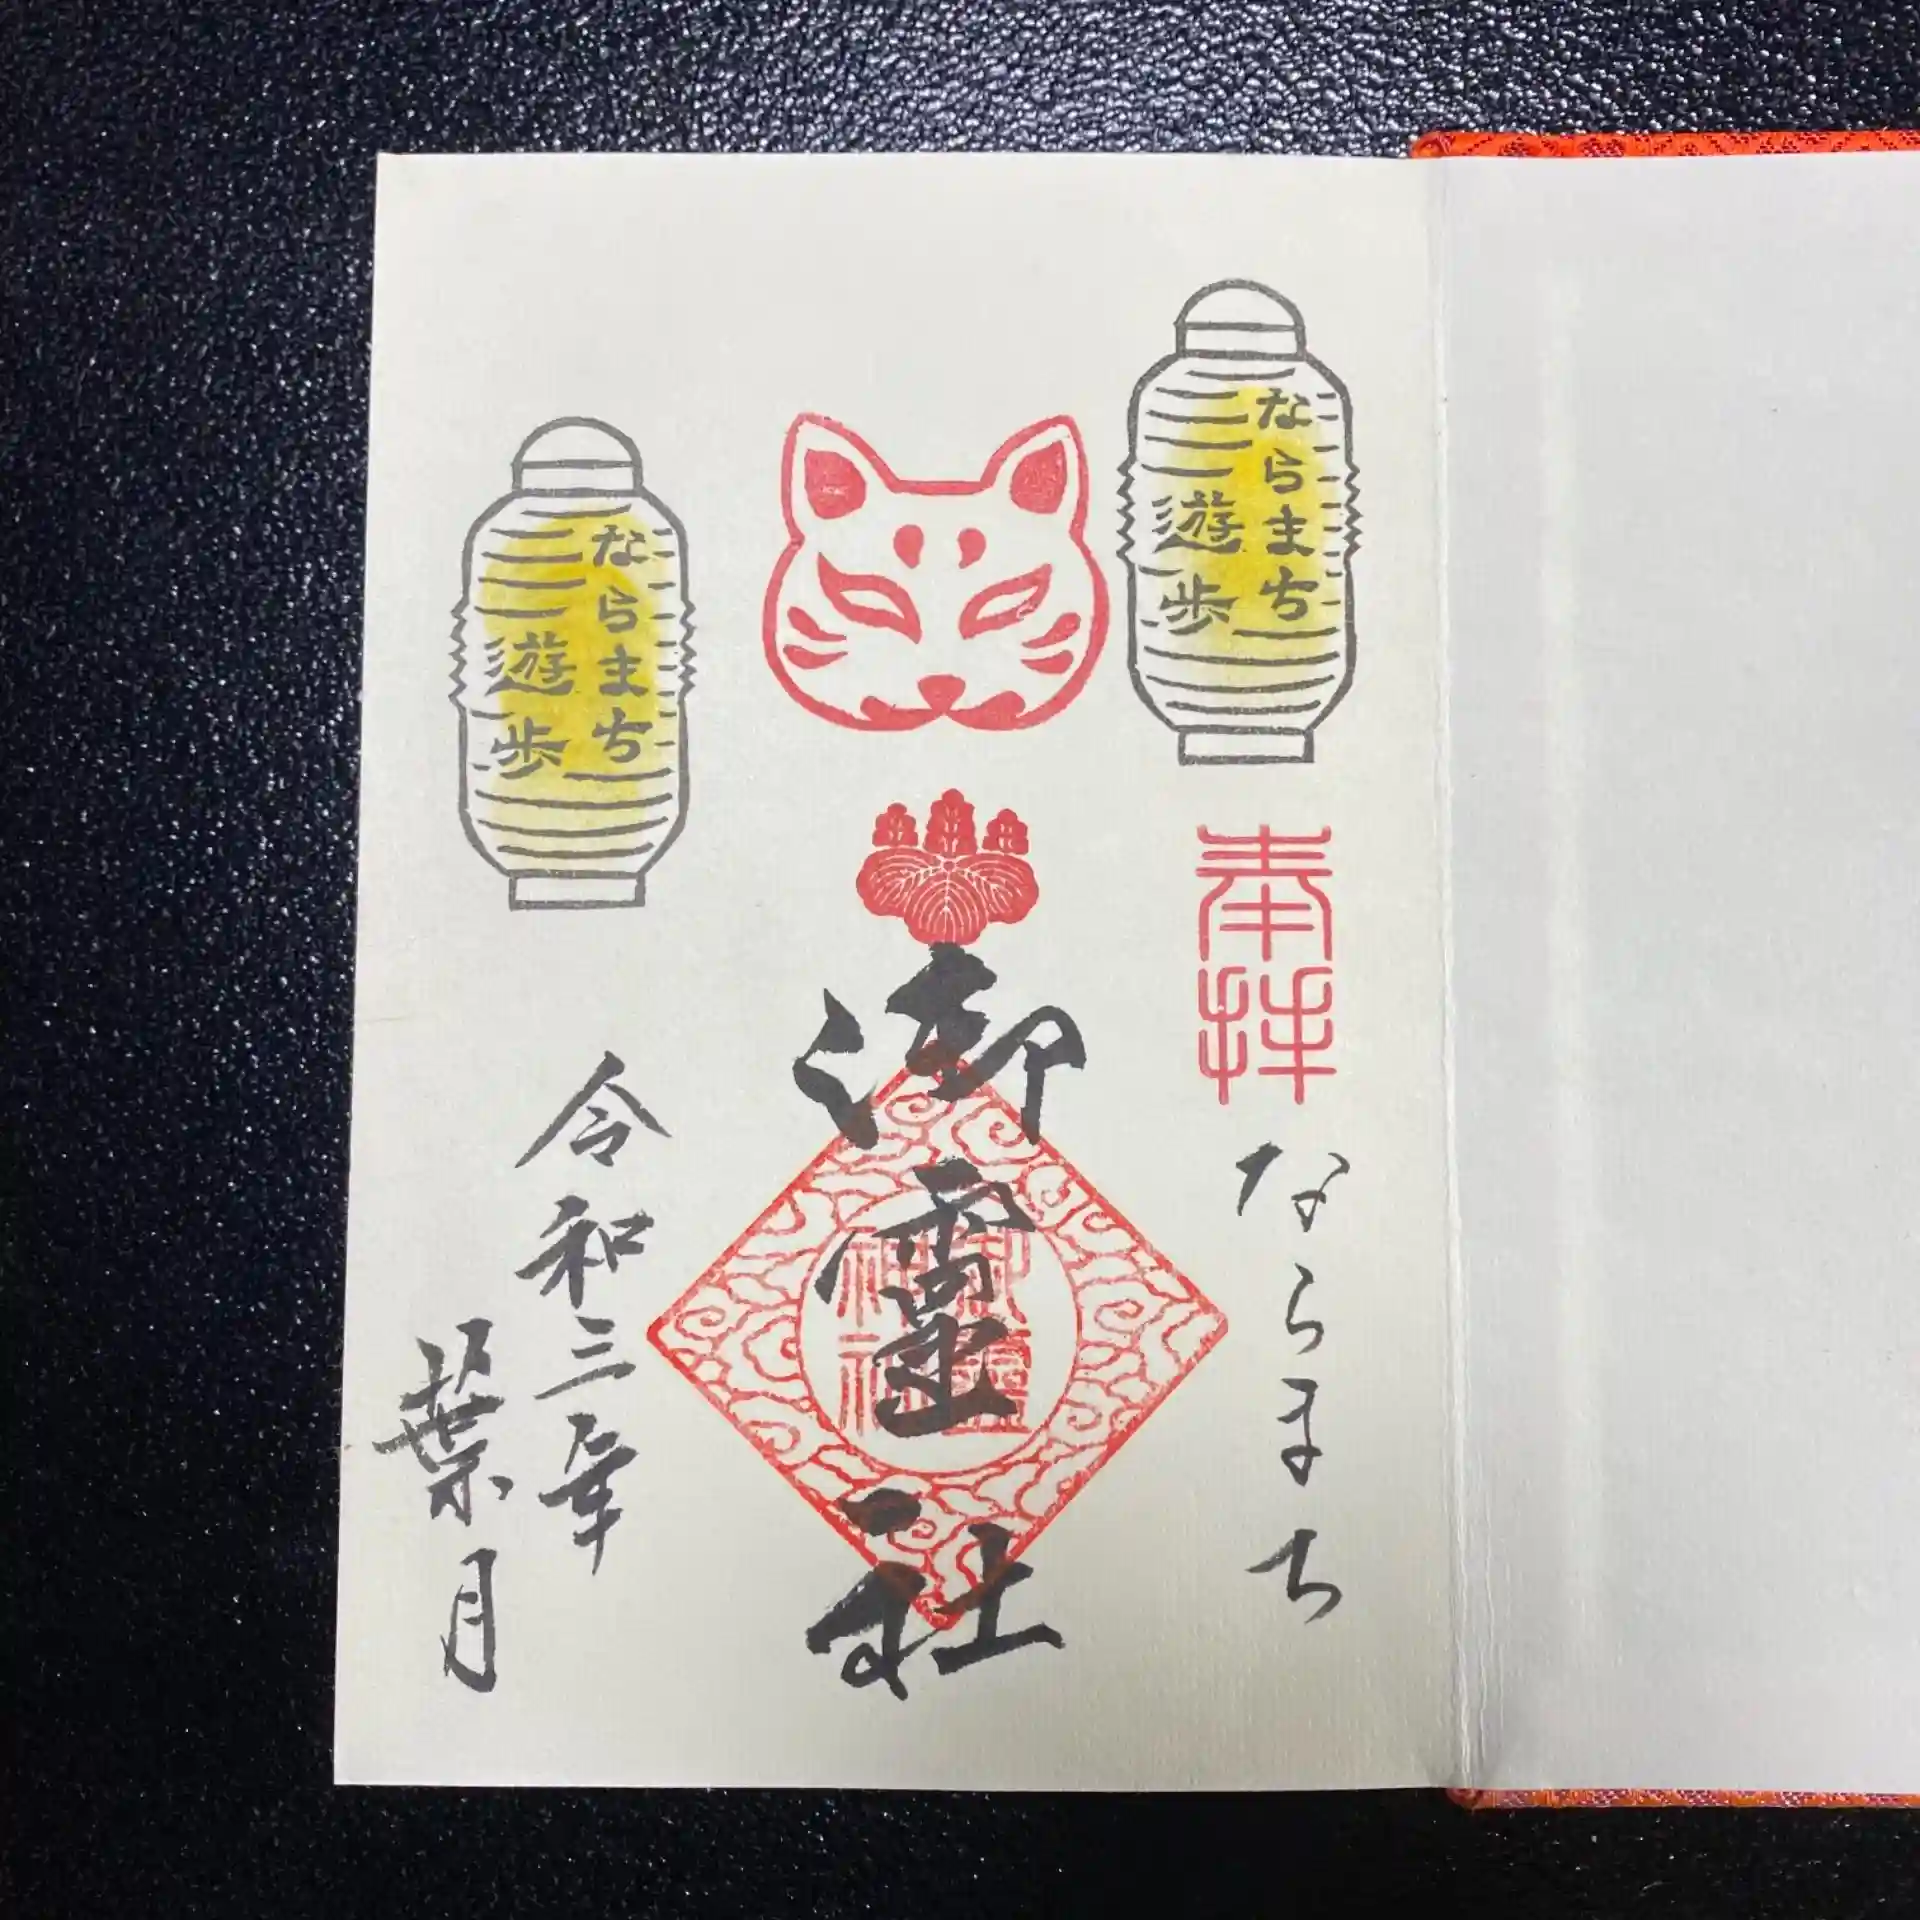 ならまち
遊歩
奉拝
ならまち
御霊社
御霊
神社
ならまち
遊歩
令和三年
葉月